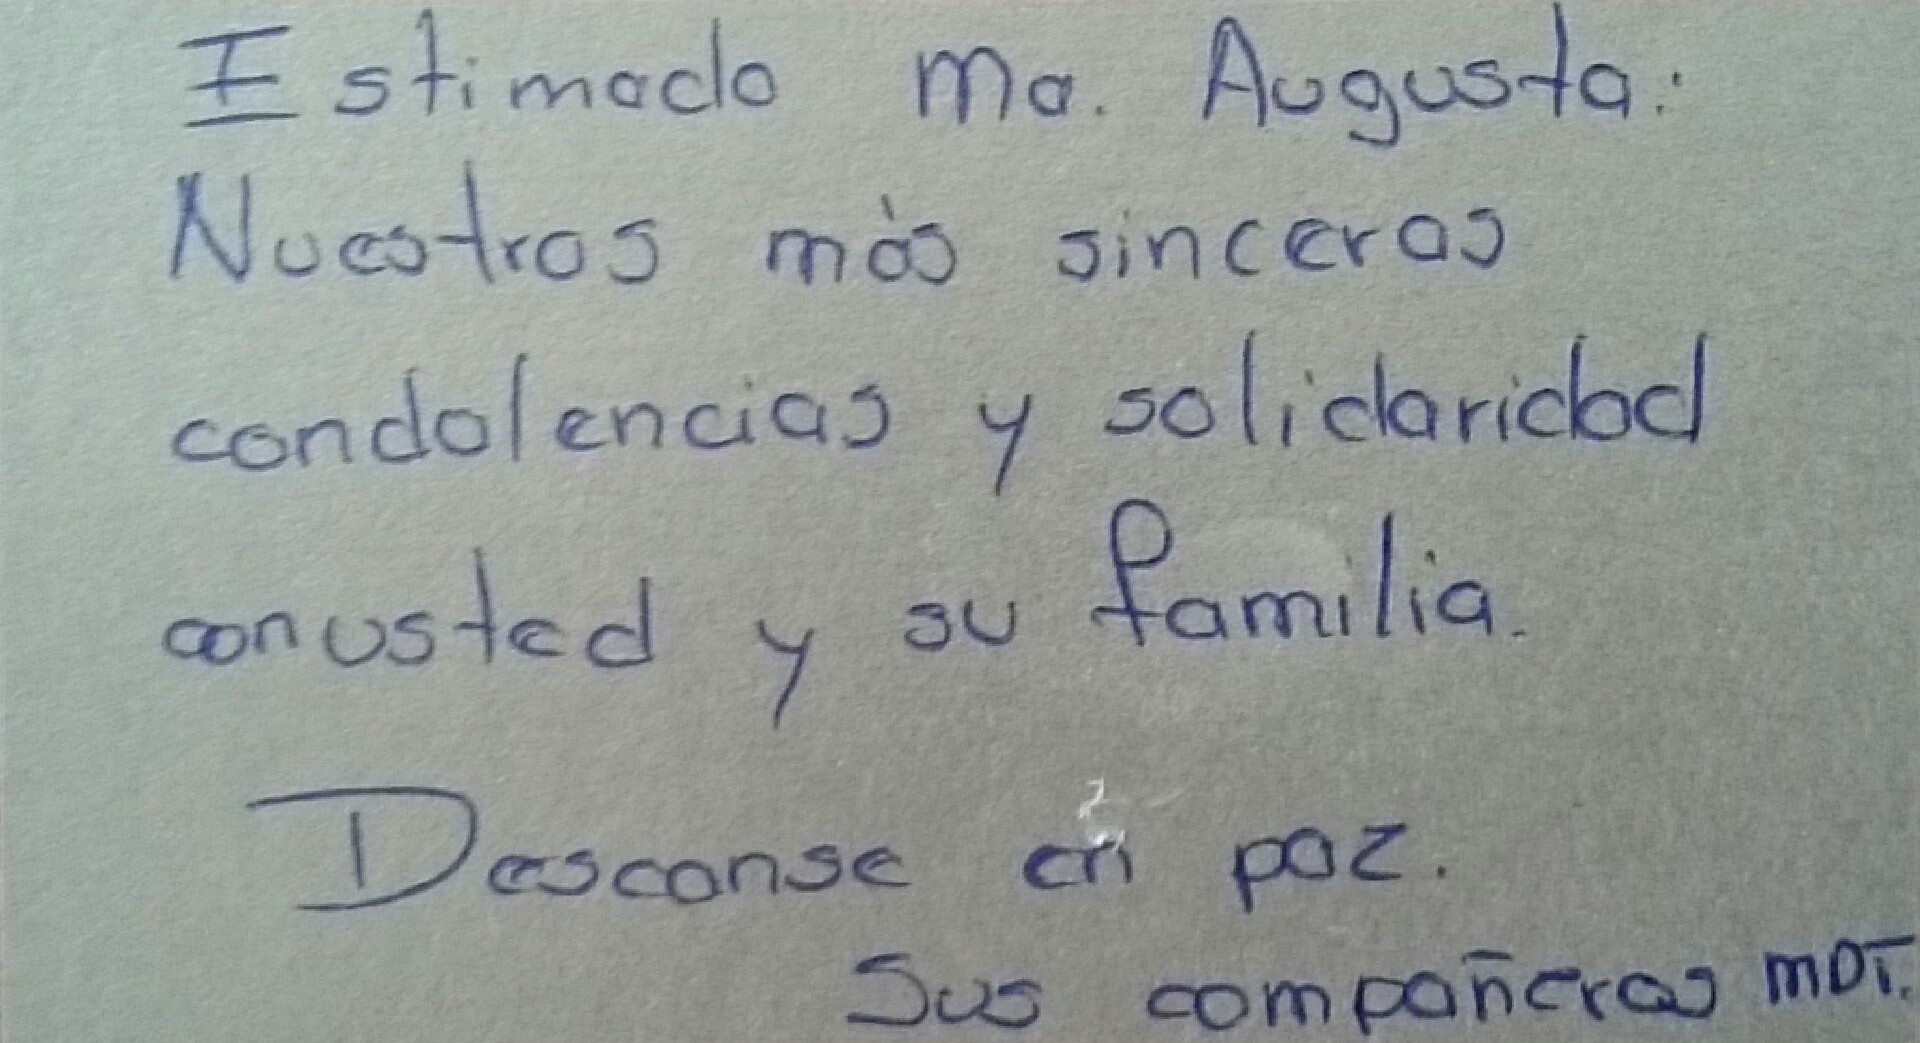 Estimada Ma. Augusta:
Nuestras más sinceras
condolencias y solidaridad
con usted y su familia.
Descanse en paz.
Sus compañeras MDT.